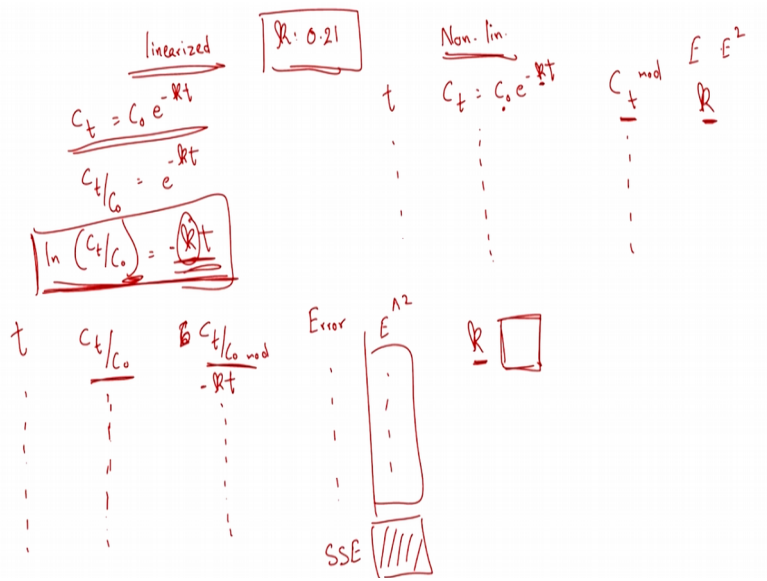 linearized
k: 0.21
C_t = C_0 e^{-kt}
C_t/C_0 = e^{-kt}
ln (C_t/C_0) = -kt
Non-lin.
t C_t = C_0 e^{-kt} C_t^{mod} E E^2
k
t C_t/C_0 C_t/C_0 mod Error E^{^2} k
-kt
SSE